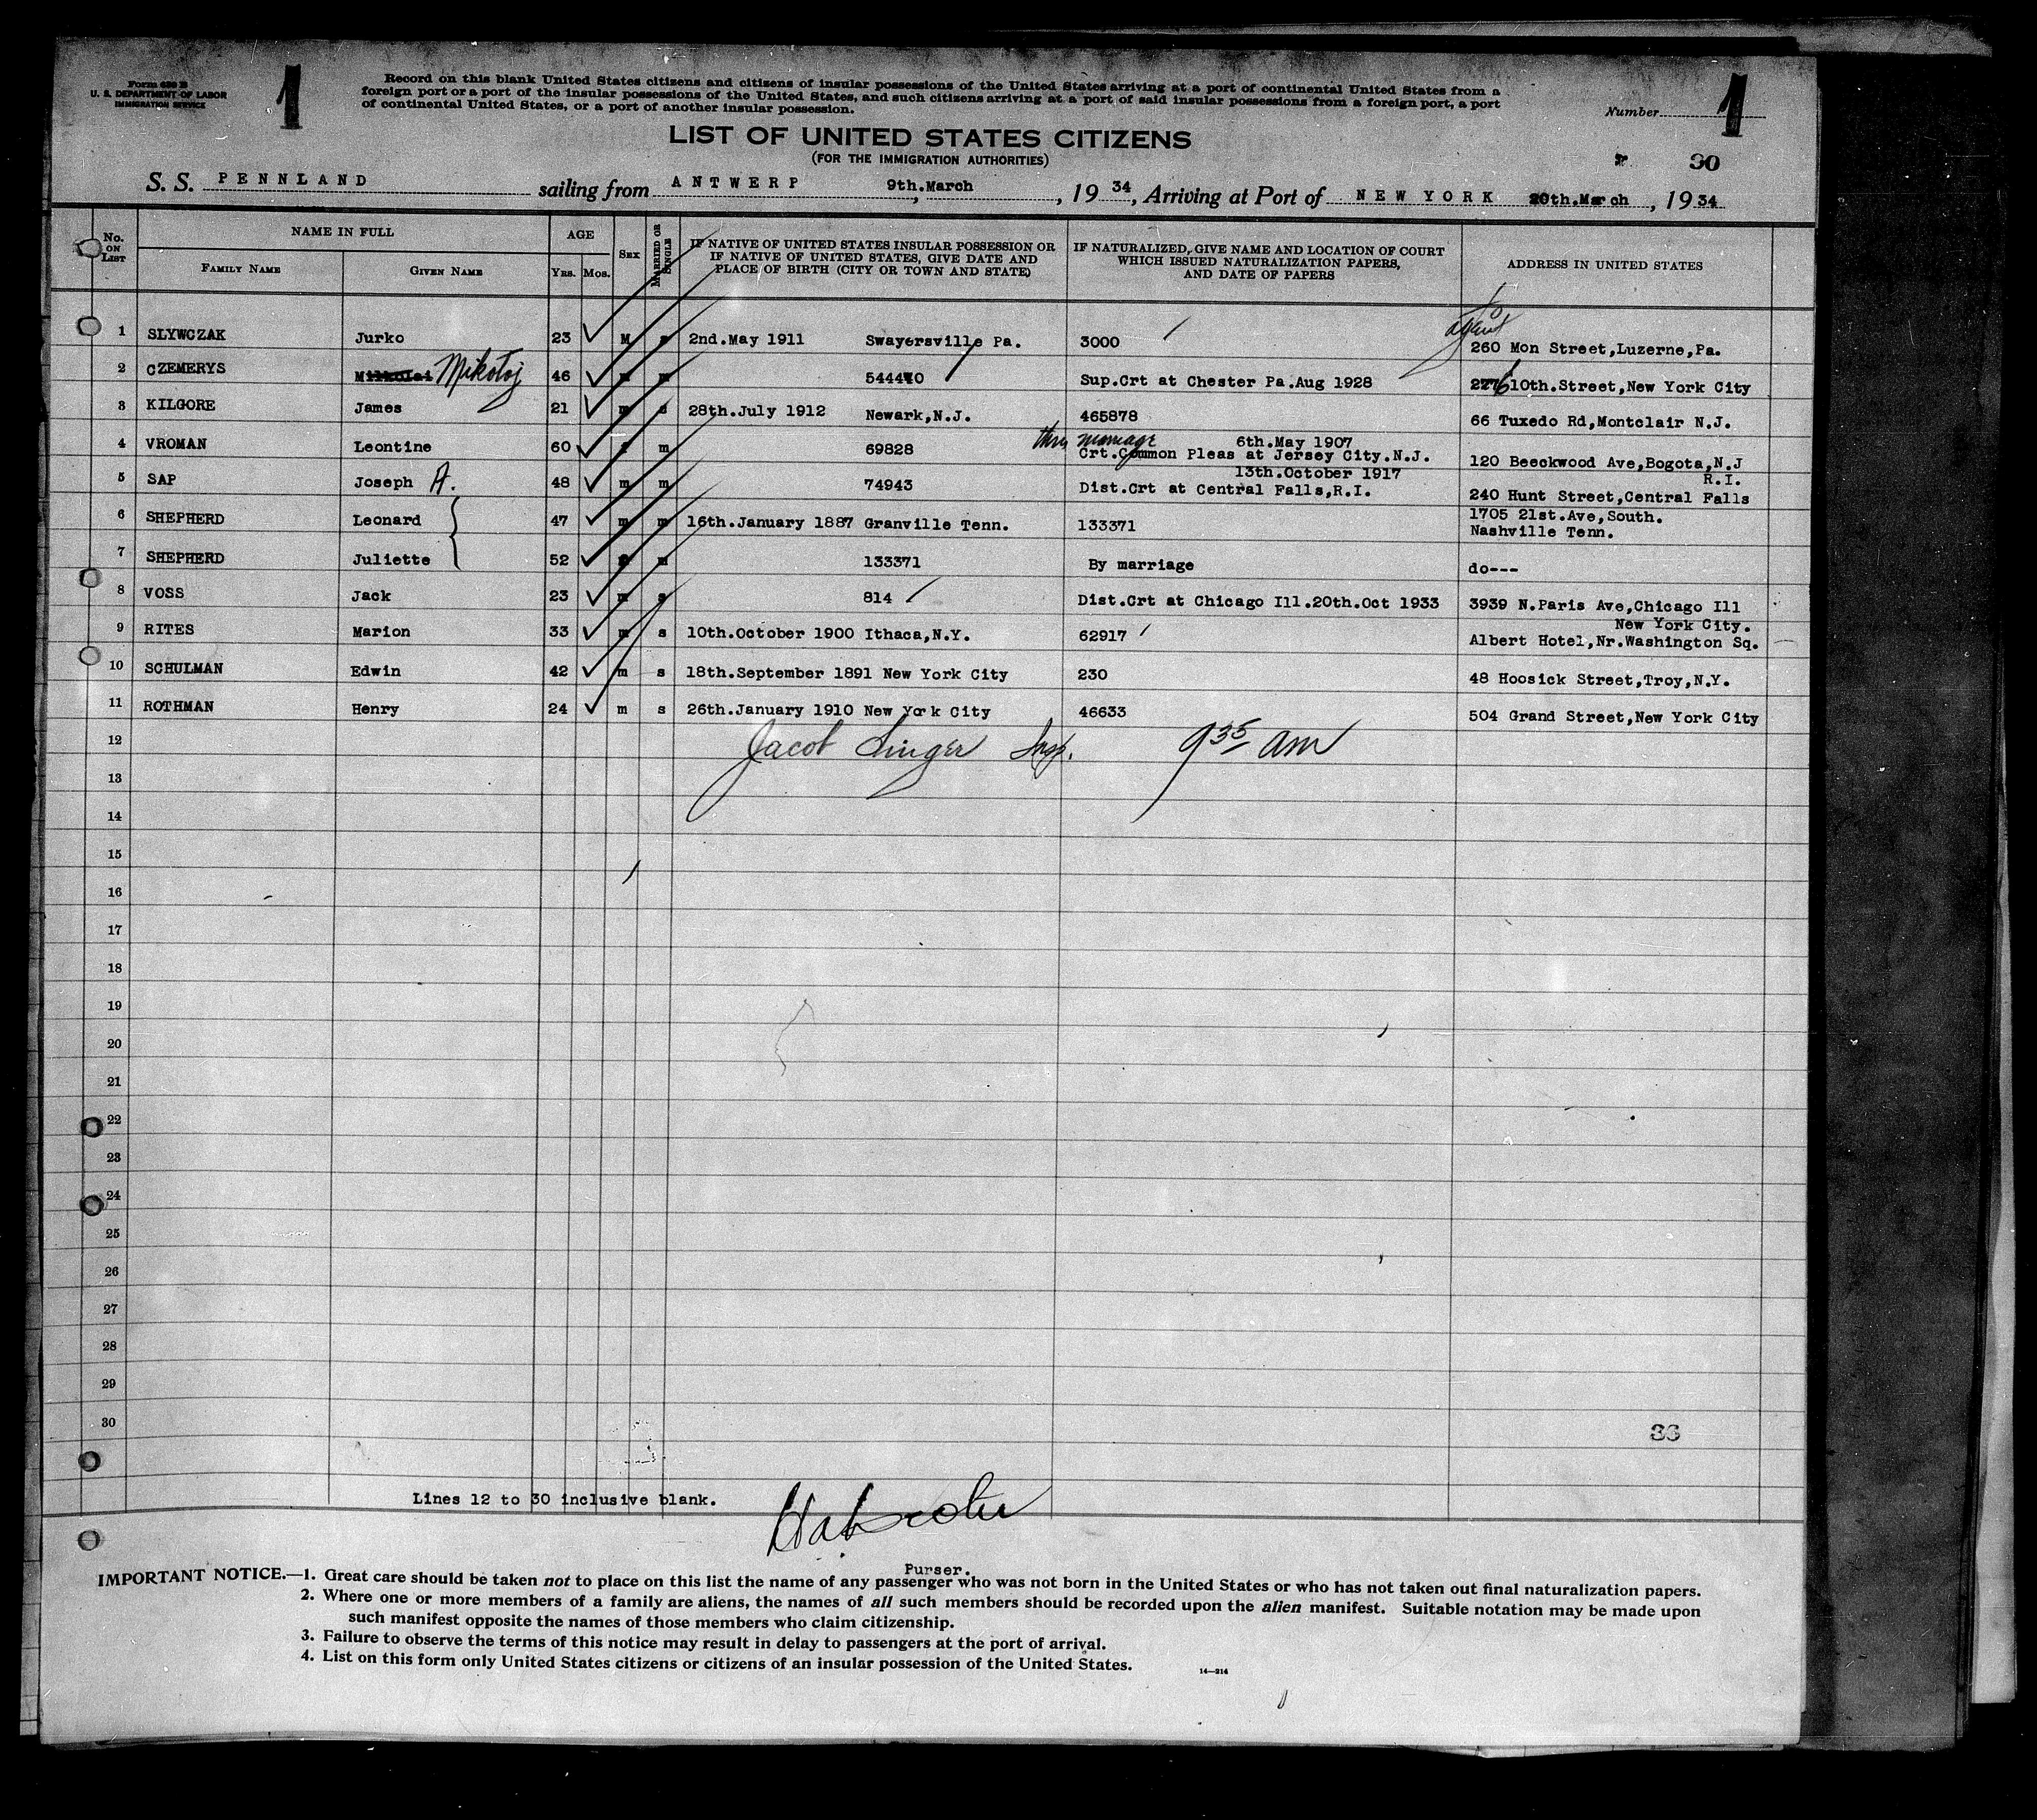 Form 630 B
U. S. DEPARTMENT OF LABOR
IMMIGRATION SERVICE
1
Record on this blank United States citizens and citizens of insular possessions of the United States arriving at a port of continental United States from a
foreign port or a port of the insular possessions of the United States, and such citizens arriving at a port of said insular possessions from a foreign port, a port
of continental United States, or a port of another insular possession.
Number 1
LIST OF UNITED STATES CITIZENS
(FOR THE IMMIGRATION AUTHORITIES)
30
S. S. PENNLAND sailing from ANTWERP 9th.March, 1934, Arriving at Port of NEW YORK 20th.March, 1934
No. ON LIST
NAME IN FULL
FAMILY NAME
GIVEN NAME
AGE
YRS. MOS.
SEX
MARRIED OR SINGLE
IF NATIVE OF UNITED STATES INSULAR POSSESSION OR
IF NATIVE OF UNITED STATES, GIVE DATE AND
PLACE OF BIRTH (CITY OR TOWN AND STATE)
IF NATURALIZED, GIVE NAME AND LOCATION OF COURT
WHICH ISSUED NATURALIZATION PAPERS,
AND DATE OF PAPERS
ADDRESS IN UNITED STATES
to
agent
1 SLYWCZAK Jurko 23 M s 2nd.May 1911 Swayersville Pa. 3000 260 Mon Street,Luzerne,Pa.
2 CZEMERYS Milkolai Mikołoj 46 m m 544440 Sup.Crt at Chester Pa.Aug 1928 2276 10th.Street,New York City
3 KILGORE James 21 m s 28th.July 1912 Newark,N.J. 465878 66 Tuxedo Rd,Montclair N.J.
thru marriage 6th.May 1907
4 VROMAN Leontine 60 f m 69828 Crt.Common Pleas at Jersey City.N.J. 120 Beeckwood Ave,Bogota,N.J
13th.October 1917 R.I.
5 SAP Joseph A. 48 m m 74943 Dist.Crt at Central Falls,R.I. 240 Hunt Street,Central Falls
6 SHEPHERD Leonard 47 m m 16th.January 1887 Granville Tenn. 133371 1705 21st.Ave,South.
Nashville Tenn.
7 SHEPHERD Juliette 52 f m 133371 By marriage do---
8 VOSS Jack 23 m s 814 Dist.Crt at Chicago Ill.20th.Oct 1933 3939 N.Paris Ave,Chicago Ill
New York City.
9 RITES Marion 33 m s 10th.October 1900 Ithaca,N.Y. 62917 Albert Hotel,Nr.Washington Sq.
10 SCHULMAN Edwin 42 m s 18th.September 1891 New York City 230 48 Hoosick Street,Troy,N.Y.
11 ROTHMAN Henry 24 m s 26th.January 1910 New York City 46633 504 Grand Street,New York City
12 Jacob Singer Insp. 9 35 am
13
14
15
16
17
18
19
20
21
22
23
24
25
26
27
28
29
30
33
Lines 12 to 30 inclusive blank.
Purser.
IMPORTANT NOTICE.—1. Great care should be taken not to place on this list the name of any passenger who was not born in the United States or who has not taken out final naturalization papers.
2. Where one or more members of a family are aliens, the names of all such members should be recorded upon the alien manifest. Suitable notation may be made upon
such manifest opposite the names of those members who claim citizenship.
3. Failure to observe the terms of this notice may result in delay to passengers at the port of arrival.
4. List on this form only United States citizens or citizens of an insular possession of the United States.
14—214